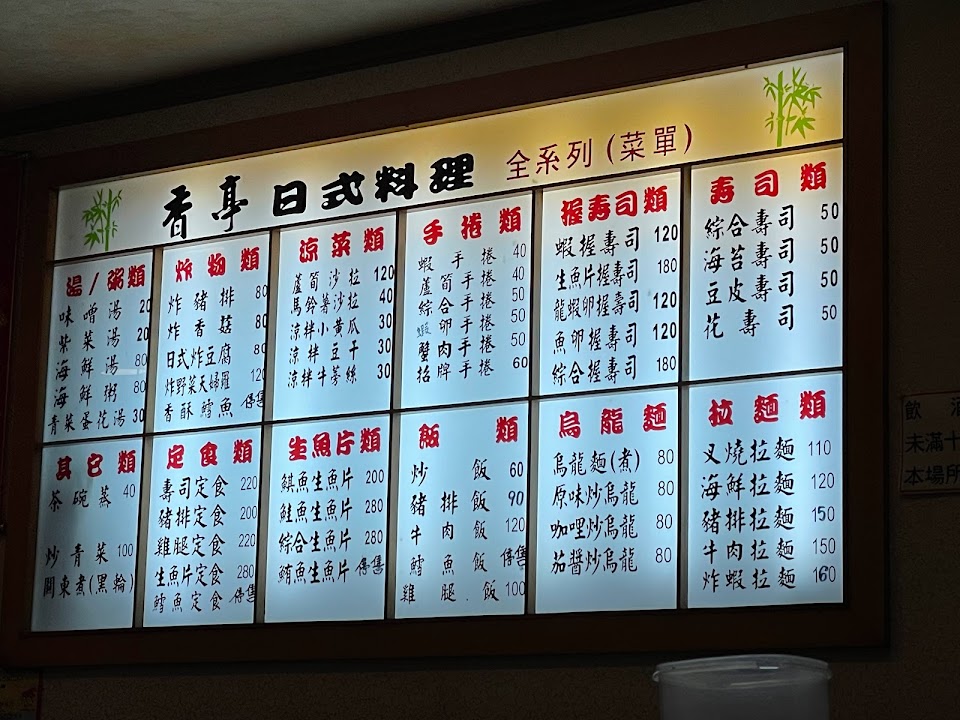 香亭 日式料理 全系列(菜單)
湯/粥類
味噌湯 20
紫菜湯 20
海鮮湯 80
海鮮粥 80
青菜蛋花湯 30
炸物類
炸豬排 80
炸香菇 80
日式炸豆腐 80
炸野菜天婦羅 120
香酥鱈魚 停售
涼菜類
蘆筍沙拉 120
馬鈴薯沙拉 40
涼拌小黃瓜 30
涼拌豆干 30
涼拌牛蒡絲 30
手捲類
蝦手捲 40
蘆筍手捲 40
綜合手捲 50
蝦卵手捲 50
蟹肉手捲 50
招牌手捲 60
握壽司類
蝦握壽司 120
生魚片握壽司 180
龍蝦卵握壽司 120
魚卵握壽司 120
綜合握壽司 180
壽司類
綜合壽司 50
海苔壽司 50
豆皮壽司 50
花壽司 50
其它類
茶碗蒸 40
炒青菜 100
關東煮(黑輪)
定食類
壽司定食 220
豬排定食 200
雞腿定食 220
生魚片定食 280
鱈魚定食 停售
生魚片類
鯕魚生魚片 200
鮭魚生魚片 280
綜合生魚片 280
鮪魚生魚片 停售
飯類
炒飯 60
豬排飯 90
牛肉飯 120
鱈魚飯 停售
雞腿飯 100
烏龍麵
烏龍麵(煮) 80
原味炒烏龍 80
咖哩炒烏龍 80
茄醬炒烏龍 80
拉麵類
叉燒拉麵 110
海鮮拉麵 120
豬排拉麵 150
牛肉拉麵 150
炸蝦拉麵 160
飲酒
未滿十
本場所